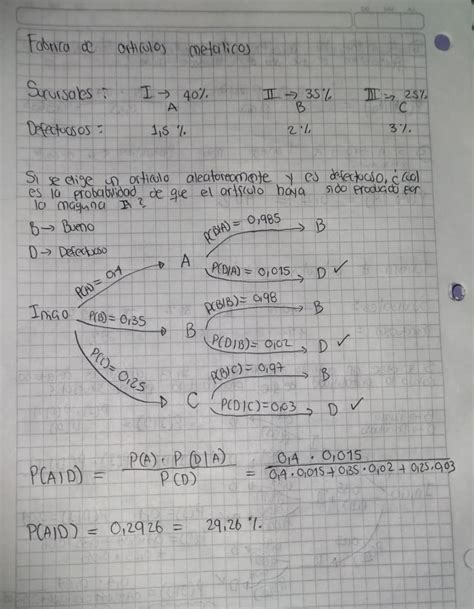 Fabrica de articulos metalicos
Sucursales: I → 40% II → 35% III → 25%
A B C
Defectuosos: 1,5 % 2 % 3 %
Si se elige un articulo aleatoreamente y es defectuoso, ¿cual
es la probabilidad de que el articulo haya sido producido por
la maquina A?
B → Bueno
D → Defectuoso
P(B|A) = 0,985 B
P(A) = 0,4 A
P(D|A) = 0,015 D ✓
P(B|B) = 0,98 B
Inicio P(B) = 0,35 B
P(D|B) = 0,02 D ✓
P(B|C) = 0,97 B
P(C) = 0,25 C
P(D|C) = 0,03 D ✓
P(A|D) = P(A) · P(D|A) / P(D) = 0,4 · 0,015 / 0,4 · 0,015 + 0,35 · 0,02 + 0,25 · 0,03
P(A|D) = 0,2926 = 29,26 %